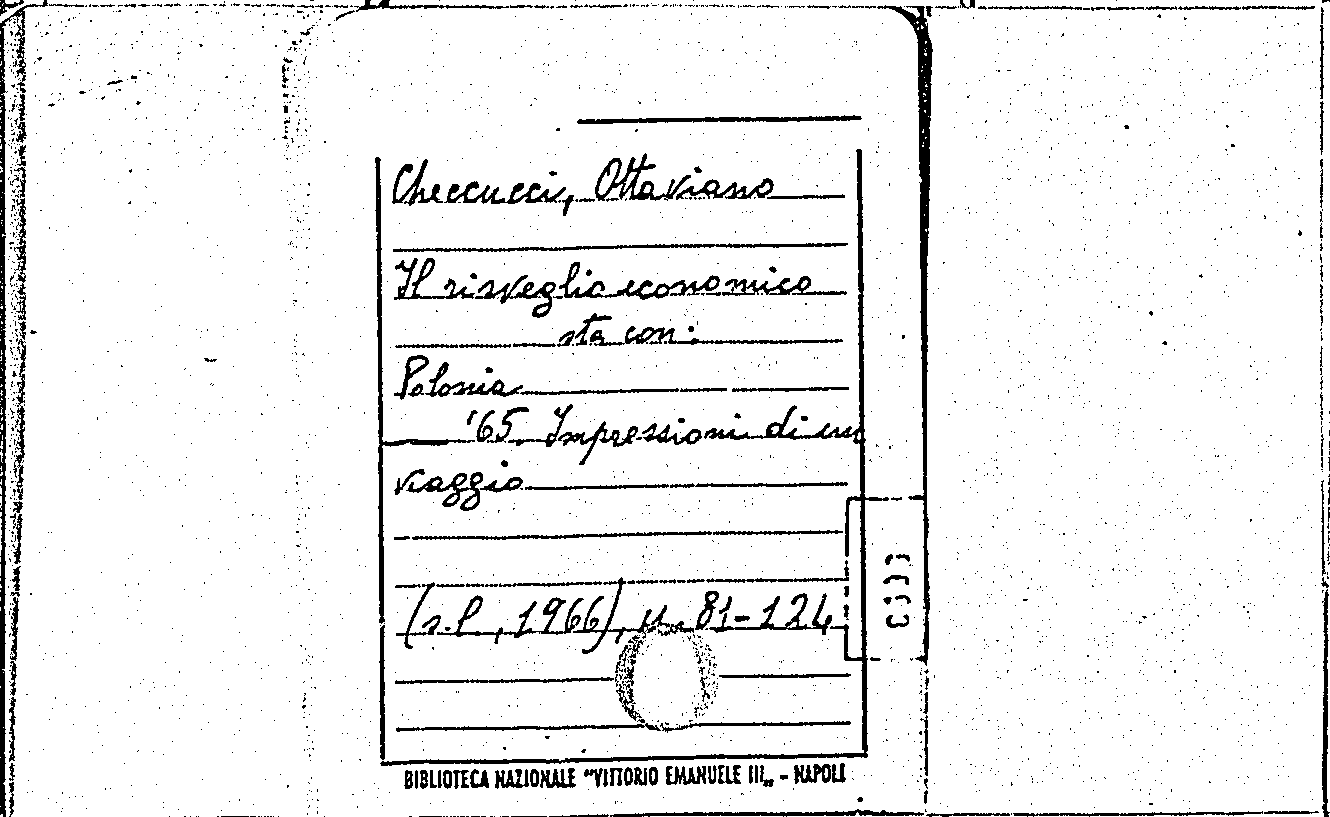 Checcucci, Ottaviano
Il risveglio economico
sta con:
Polonia
'65. Impressioni di un
viaggio
(s.l., 1966), 81-124
BIBLIOTECA NAZIONALE "VITTORIO EMANUELE III„ - NAPOLI